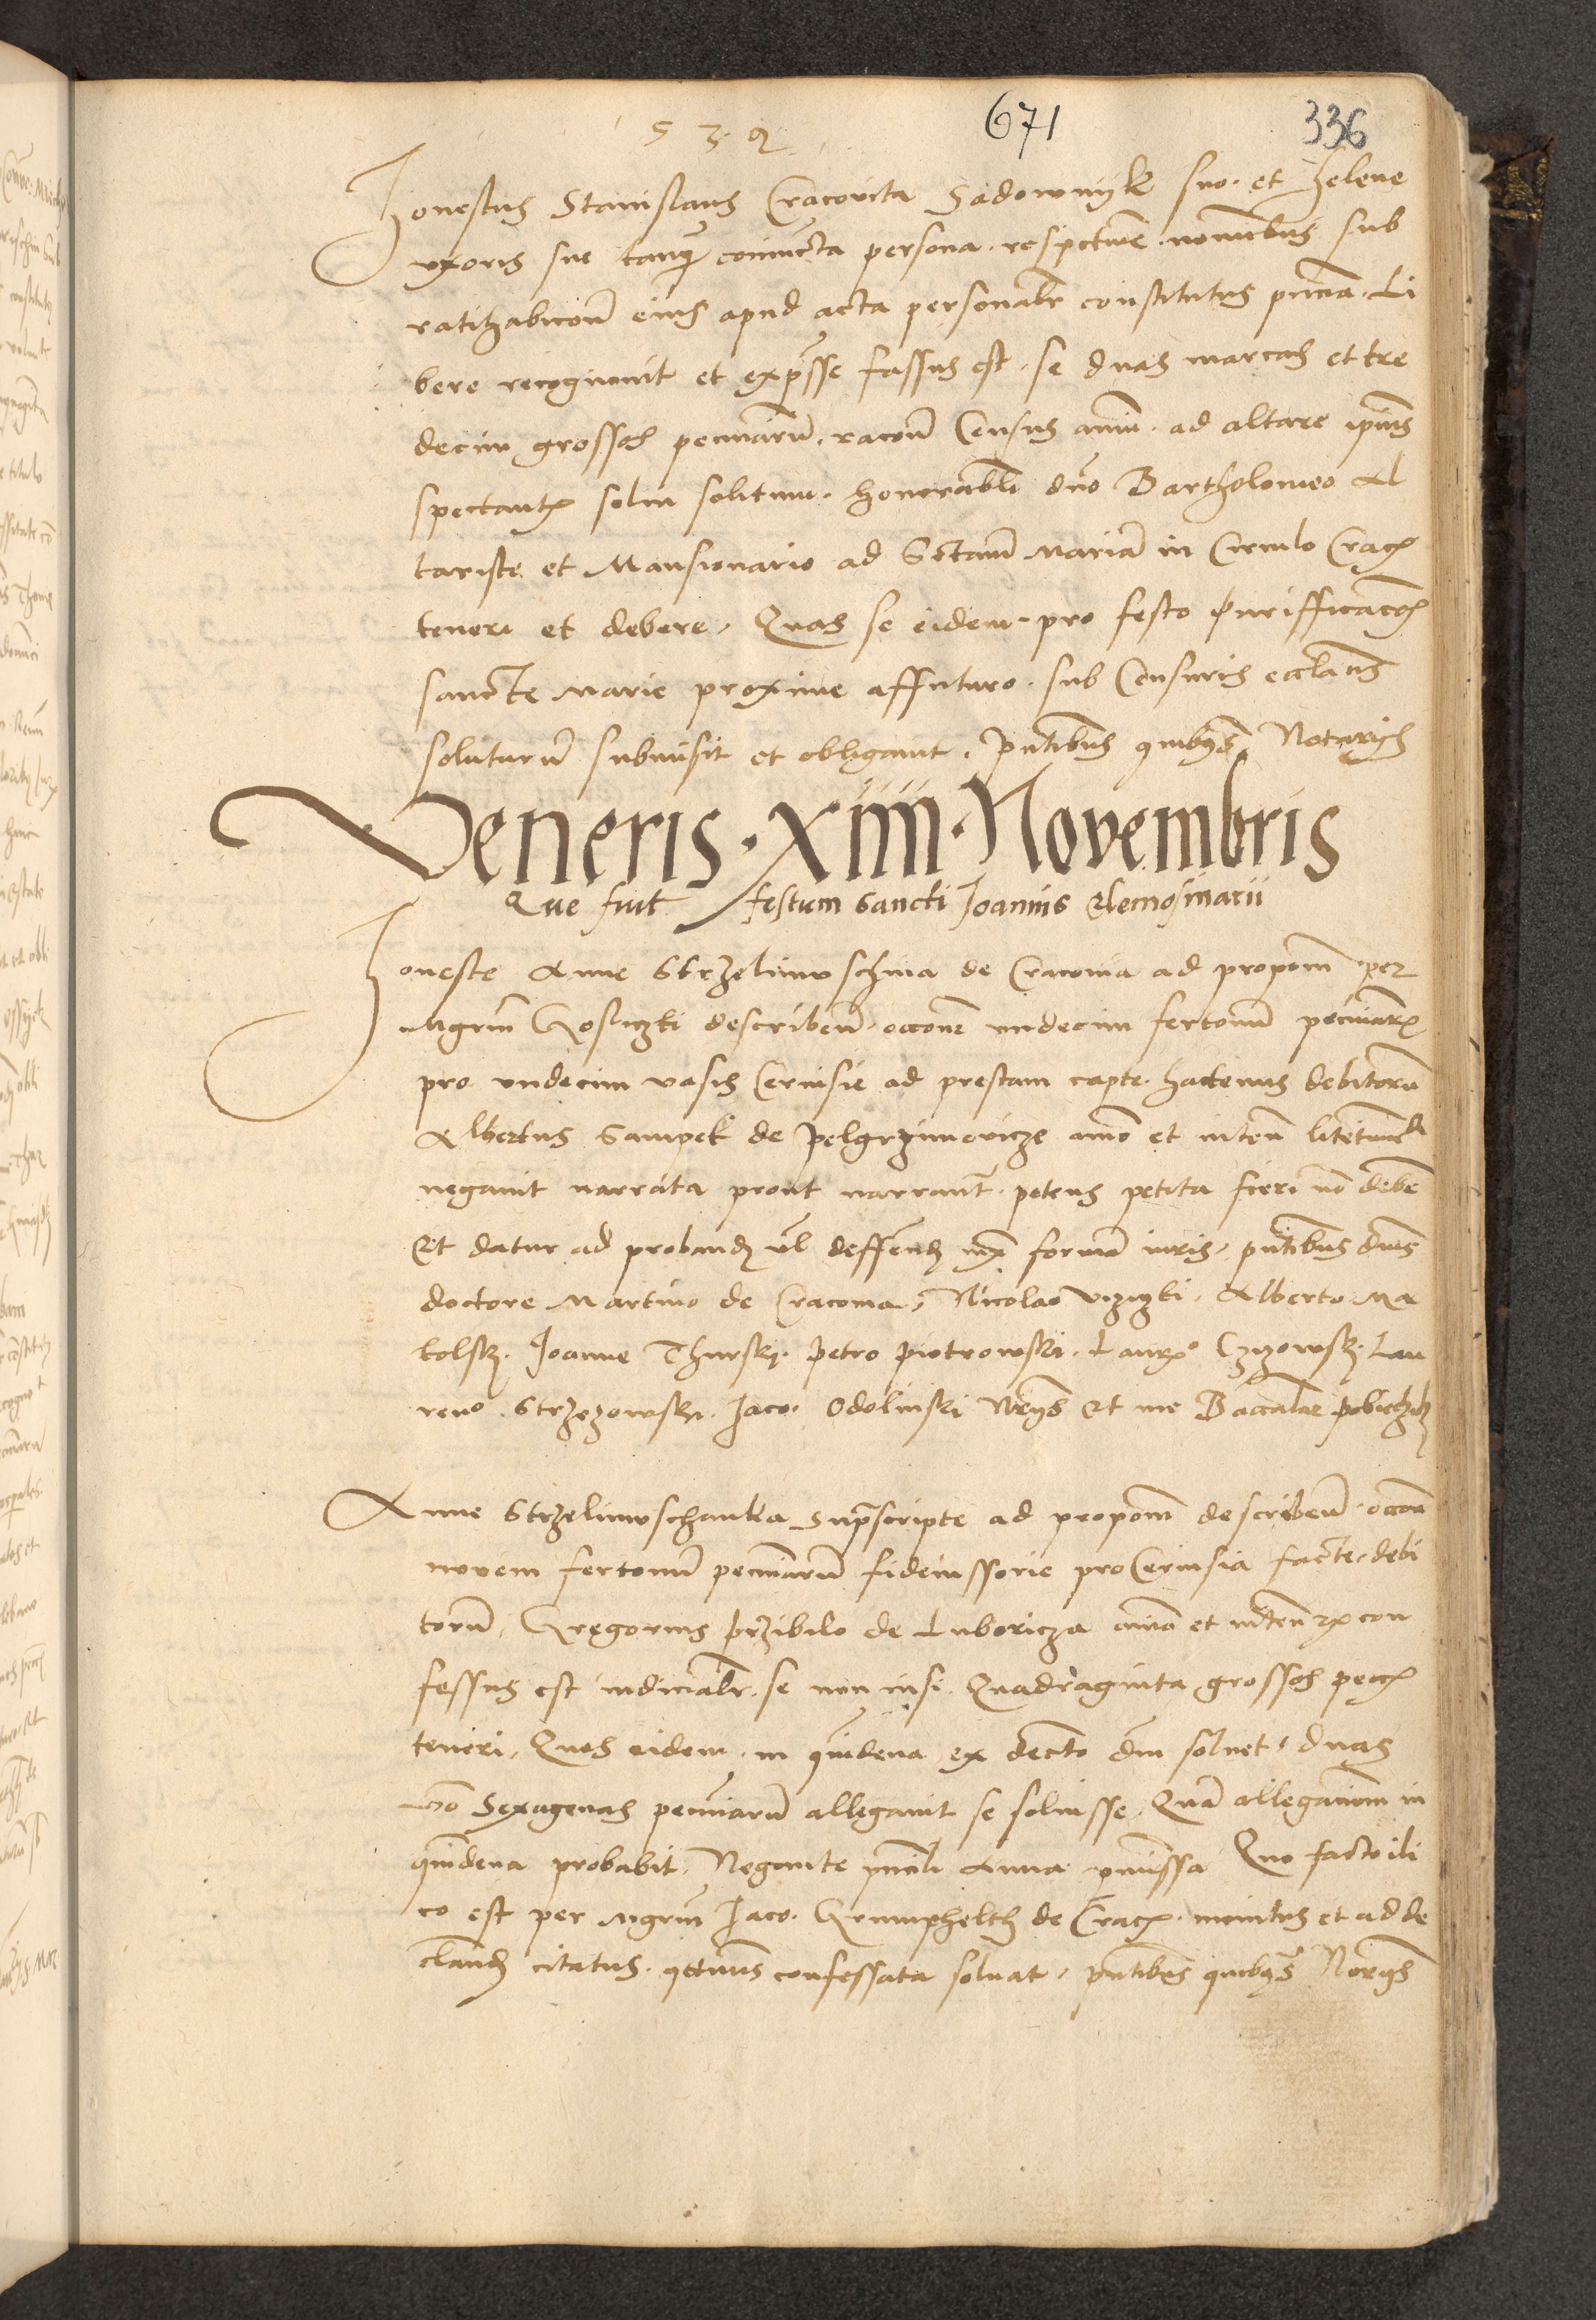 5 3 9 671 336
Honestus Stanislaus Cracovita Sadownyk suo et Helene
uxoris sue tanq coniuncta persona respective nominibus sub
ratihabicionē eius apud acta personalr constitutus Li
bere recognovit et exp̄sse fassus est se duas marcas et tre
decim grossos pecuniarū racōē Census annui ad altare ipsius
spectantis solvi solitum honorabili dn̄o Bartholomeo Al
tariste et Mansionario ad Sctam Mariā in Circulo Crac
teneri et debere Quas se eidem pro festo purifficacōis
sancte Marie proxime affuturo sub Censuris eccl̄acis
soluturū submisit et obligavit pn̄tibus quibus Notariis
Veneris XIIII Novembris
Que fuit festum Sancti Joannis Elemosinarii
Honeste Anne Strzelimuschina de Cracovia ad proponē per
Mgrm Goslyczki describenū occōne undecim fertonū pecuniarū
pro undecim vasis Cervisie ad prestam capte hactenus debitorū
Albertus Sampek de Pelgrzimovicze
negavit narrata prout narrantr petens petita fieri nō debē
Et datur ad proband vl deffend forma iuris pn̄tibus dn̄is
doctore Martino de Cracovia Nicolao Alberto Ma
kolsky Joanne Thursky Petro Piotrowski Laurē Czyzowsky Lau
renō Strzezowsky Jaco Odolinski Nrys Et me Baccalar
Anne Strzelimuschanka supscripte ad proponē describenū occōē
novem fertonū pecuniarū fideiussorie pro Cervisia facte debi
torū Gregorius Przibilo de Luboricza con
fessus est iudicialr se non nisi Quadraginta grossos pecc
teneri Quos eidem in quindena ex decto dni solvet duas
vo Sexagenas pecuniarū allegavit se solvisse Quā allegacionem in
quindena probabit Negante Anna Quo facto ili
co est per Mgrm Jaco Grumphelth de Crac monitus et ad de
cland citatus confessata solvat pn̄tibus quibus Norys